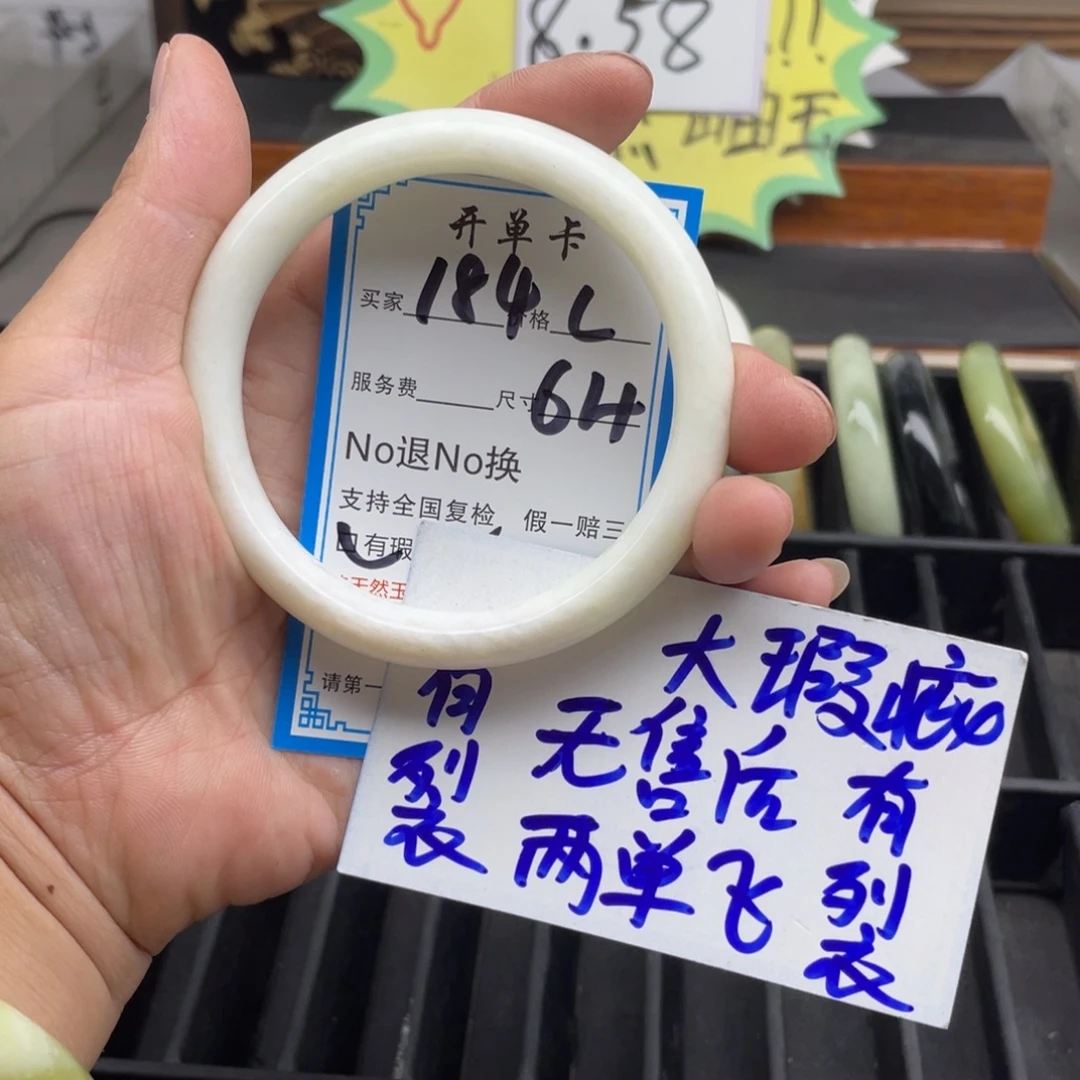 8.58
!!!
岫玉
开单卡
买家 184 价格 L
服务费 尺寸 64
No退No换
支持全国复检 假一赔三
口有瑕
天然玉
请第一
大瑕疵
有裂 无售后 有裂
两单飞